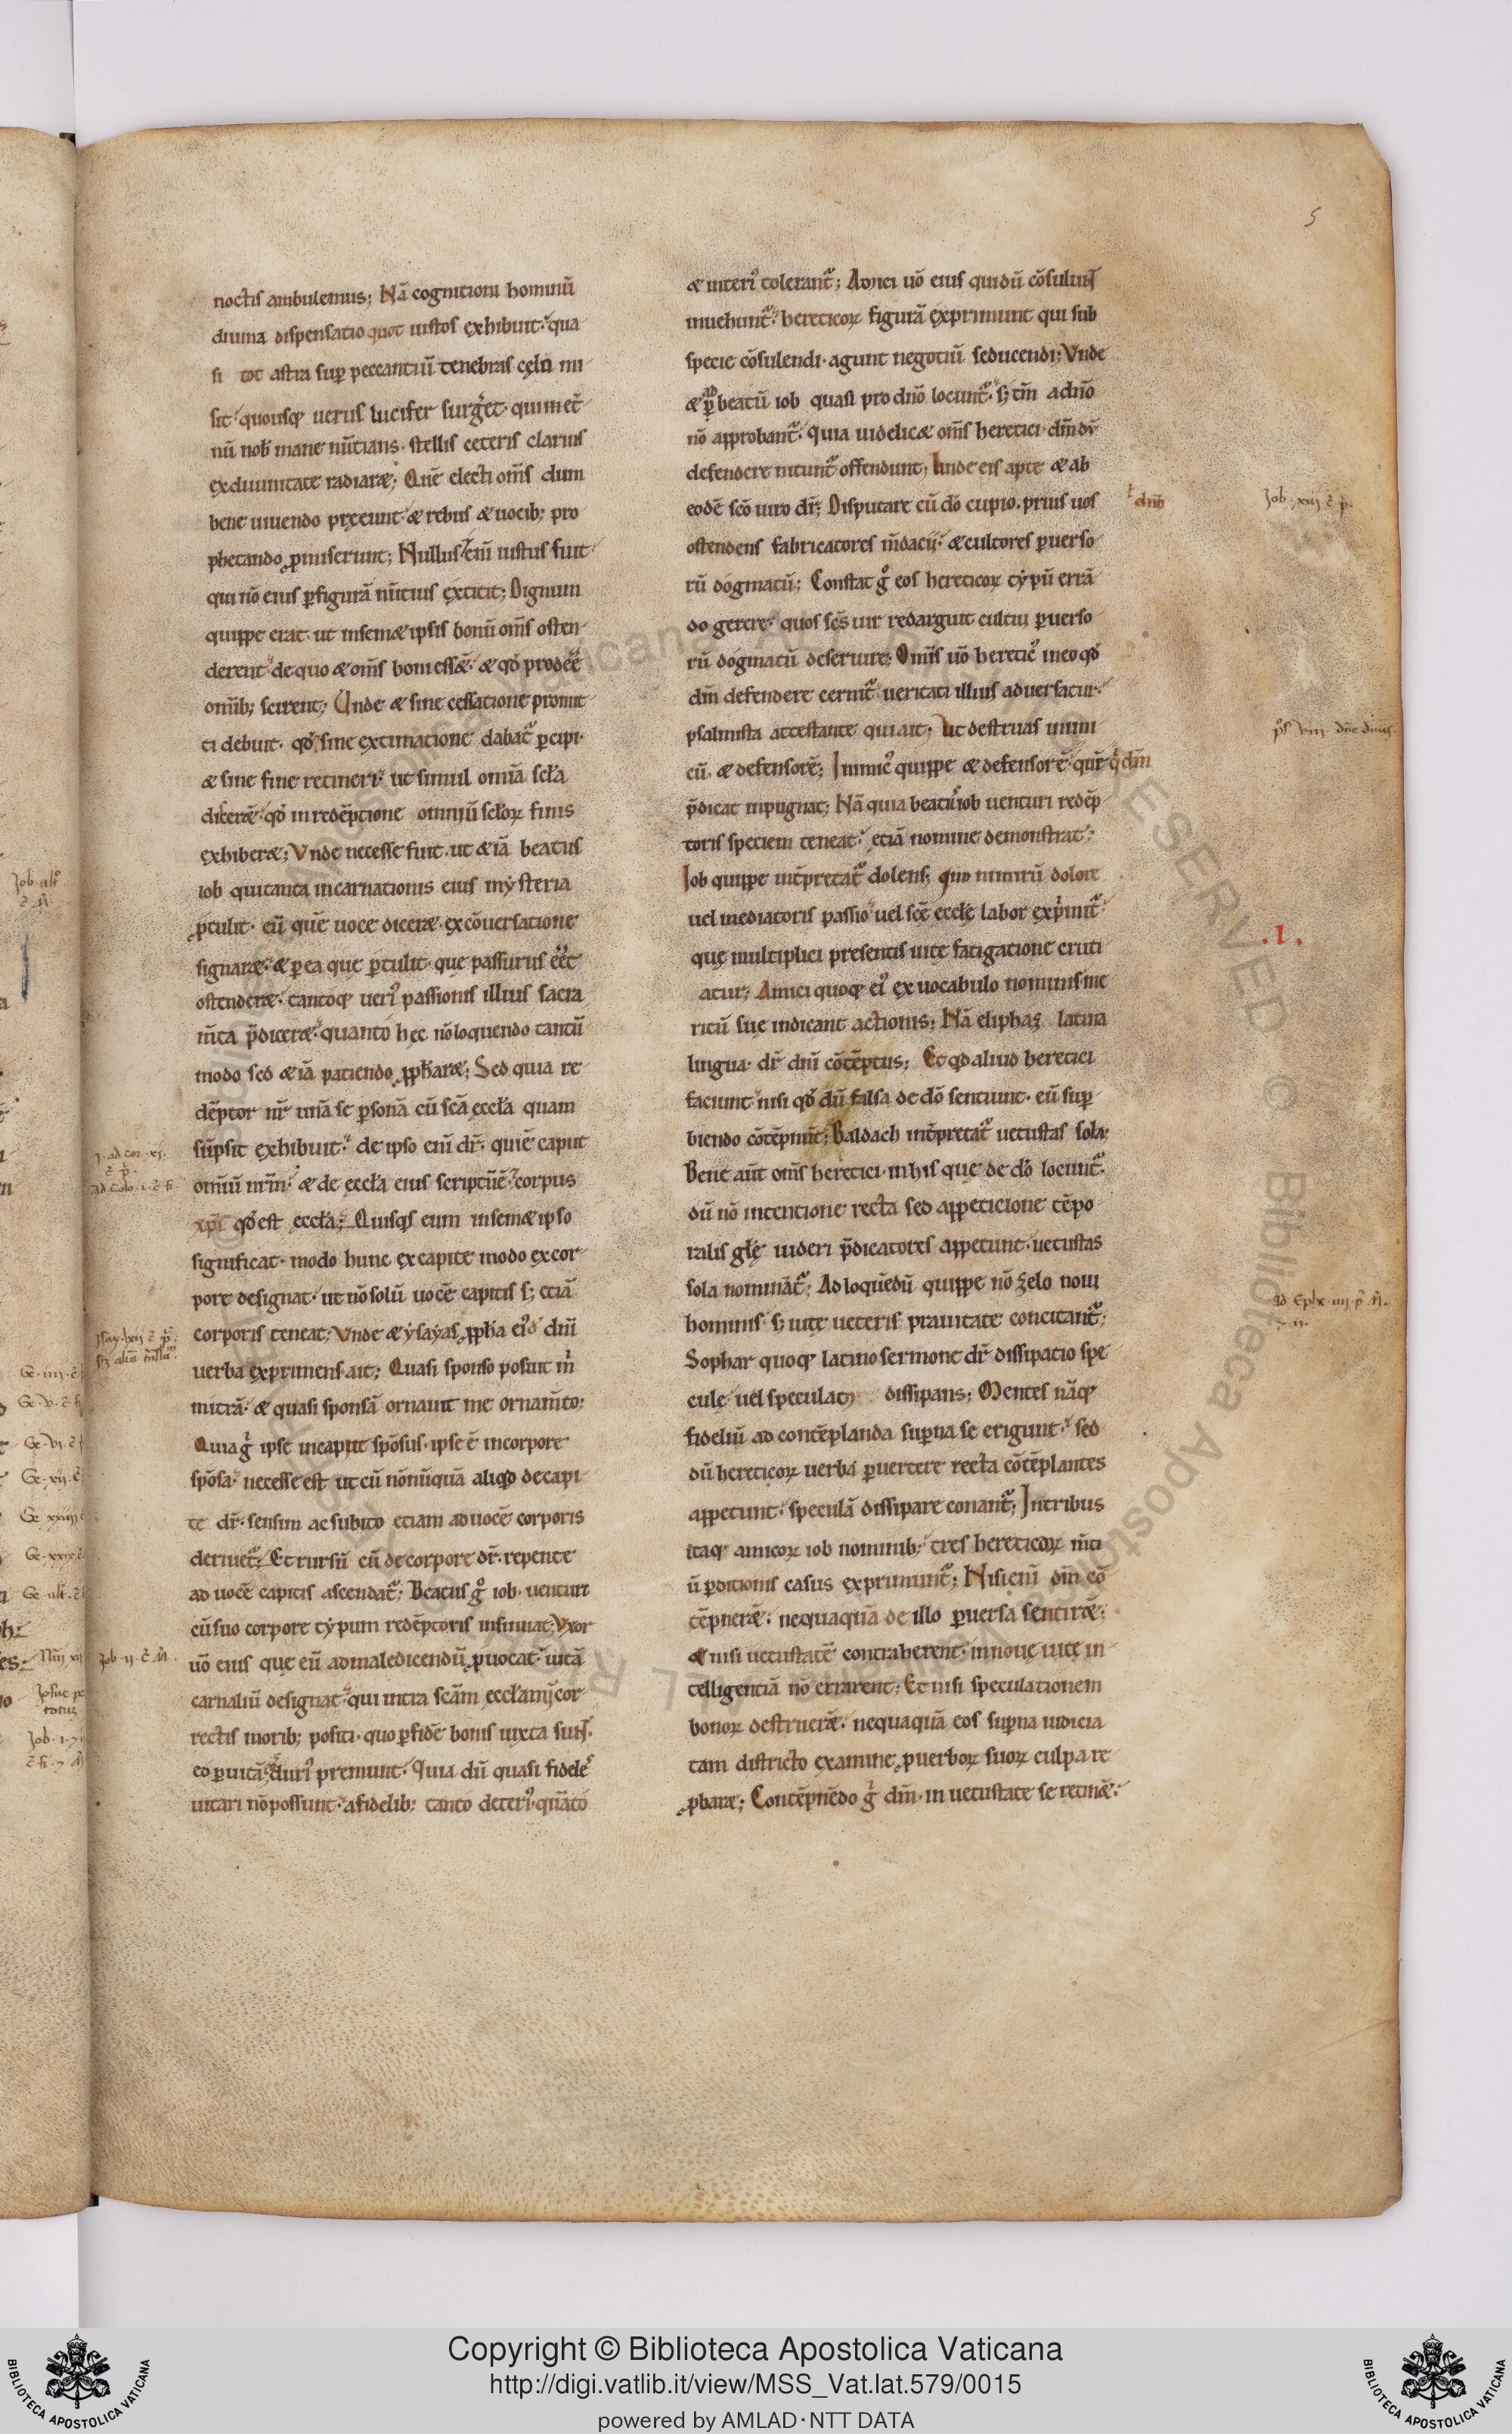 5
noctis ambulemus; Nā cognitioni hominū
diuina dispensatio quot iustos exhibuit· qua
si tot astra sup peccantiū tenebras cęlū mi
sit· quousq; uerus lucifer surg̾et· qui in et̄
nū nob̄ mane nūtians· stellis ceteris clarius
ex diuinitate radiaræ; Quē electi om̄s dum
bene uiuendo preęunt· æ rebus æ uocib; pro
phetando ꝓmiserunt; Nullus eni iustus fuit
qui nō eius ꝑ figurā nūtius extitit; Dignum
quippe erat ut in semæipsis bonū om̄s osten
derent de quo æ om̄s boni essēt· æ qđ prodēē
om̄ib; scirent; Unde æ sine cessatione promit
ti debuit· qđ sine extimatione dabat᷑ ꝑcipi·
æ sine fine retineri· ut simul omīa scła
dicerēt· qđ in redēptione omniū scłoꝝ finis
exhiberæ; Vnde necesse fuit· ut æiā beatus
iob qui tanta incarnationis eius mẏsteria
ꝓtulit· eū quē uoce diceræ· ex cōuersatione
signaræ· æ ꝑ ea que ꝑtulit· que passurus ēēt
ostenderæ· tantoq; ueri᷒ passionis illius sacra
m̄ta p̄diceræ· quanto hec nō loquendo tantū
modo sed æiā patiendo ꝓph̄aræ; Sed quia re
dēptor nr̄ unā se ꝑsonā cū scā eccła quam
sūpsit exhibuit· de ipso eni dr̄· qui ē caput
omniū nr̄m· æ de eccła eius scriptū ē· corpus
xp̄i qđ est eccła; Quisq̇s eum in semæipso
significat· modo hunc ex capite modo ex cor
pore designat· ut nō solū uocē capitis s; etiā
corporis teneat; Vnde æ ẏsaẏas ꝓph̄a ei᷒đ dn̄i
uerba exprimens ait; Quasi sponso posuit m̄
mitrā· æ quasi sponsā ornauit me ornam̄to;
Quia g̾ ipse in capite spōsus· ipse ē in corpore
spōsa· necesse est ut cū nōnūquā aliqđ de capi
te dr̄· sensim ac subito etiam ad uocē corporis
deriuet᷑; Et rursū cū de corpore dr̄· repente
ad uocē capitis ascendat᷑; Beatus g̊ iob· uenturi
cū suo corpore tẏpum redēptoris insinuat; Vxor
uō eius que eū ad maledicendū ꝓuocat· uitā
carnaliū designat· qui intra scām eccłam icor
rectis morib; positi· quo ꝑ fidē bonis iuxta sunt·
eo ꝑ uitā duri᷒ premunt· Quia dū quasi fideles
uitari nō possunt· a fidelib; tanto deteri᷒· quāto
æ interi᷒ tolerant᷑; Amici uō eius qui dū cōsulunt
inuehunt᷑· hereticoꝝ figurā exprimunt qui sub
specie cōsulendi· agunt negotiū seducendi; Vnde
æ ad beatū iob quasi pro dn̄o locunt᷑· s; tm̄ a dn̄o
nō approbant᷑· Quia uidelicæ om̄s heretici dm̄ dū
defendere nitunt᷑ offendunt; Unde eis apte æ ab
eodē scō uiro dr̄; Disputare cū dō cupio· prius uos
ostendens fabricatores m̄dacii· æ cultores ꝑuerso
rū dogmatū; Constat g̊ eos hereticoꝝ tẏpū errā
do gerere· quos scs uir redarguit cultui ꝑuerso
rū dogmatū deseruire; Omis uō heretic᷒ in eo qđ
dm̄ defendere cernit᷑ ueritati illius aduersatur·
psalmista attestante qui ait· Ut destruas inimi
cū· æ defensorē; Inimic᷒ quippe æ defensor ē· qui dm̄
p̄dicat inpugnat; Nā quia beatus iob uenturi redēp
toris speciem teneat· etiā nomine demonstrat;
Iob quippe int̄pretat᷑ dolens; Quo nimirū dolore
uel mediatoris passio uel scē ecclę labor exprimit᷑·
quę multiplici presentis uite fatigatione cruci
atur; Amici quoq; ei᷒ ex uocabulo nominis me
ritū suę indicant actionis; Nā eliphaz latina
lingua· dr̄ dn̄i cōtēptus; Et qđ aliud heretici
faciunt nisi qđ dū falsa de dō sentiunt· eū sup
biendo cōtēpnūt; Baldach int̄pretat᷑ uetustas sola;
Bene aut̄ om̄s heretici· in his que de dō locunt᷑·
dū nō intentione recta sed appeticione tēpo
ralis głę uideri p̄dicatores appetunt· uetustas
sola nominat᷑; Ad loquēdū quippe nō zelo noui
hominis s; uite ueteris prauitate concitant᷑;
Sophar quoq; latino sermone dr̄ dissipatio spe
cule uel speculat dissipans; Mentes nāq;
fideliū ad contēplanda supna se erigunt· sed
dū hereticoꝝ uerba ꝑuertere recta cōtēplantes
appetunt· speculā dissipare conant᷑; In tribus
itaq; amicoꝝ iob nominib; tres hereticoꝝ m̄ti
ū ꝑditionis casus exprimunt᷑; Nisi eni dm̄ cō
tēpnerēt· nequaquā de illo ꝑuersa sentirēt;
æ nisi uetustatē contraherent· in noue uitę in
telligentiā nō errarent; Et nisi speculationem
bonoꝝ destruerēt· nequaquā eos supna iudicia
tam districto examine ꝓ uerboꝝ suoꝝ culpa re
ꝓbaræ; Contēpnēdo g̾ dm̄· in uetustate se retinēt·
dn̄o
Iob· xiij c̄ p̄·
ps̄ viij dn̄e dn̄us
.I.
ad Ephe· iiij
Iob· ij· c̄
Copyright © Biblioteca Apostolica Vaticana
http://digi.vatlib.it/view/MSS_Vat.lat.579/0015
powered by AMLAD·NTT DATA
BIBLIOTECA APOSTOLICA VATICANA
BIBLIOTECA APOSTOLICA VATICANA